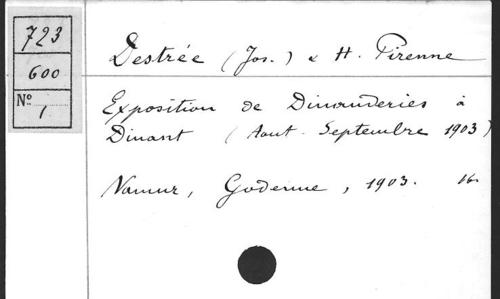 723
600
N° 1
Destrée (Jos.) & H. Pirenne
Exposition de Dinanderies à
Dinant (Aout-Septembre 1903)
Namur, Godenne, 1903. 16.